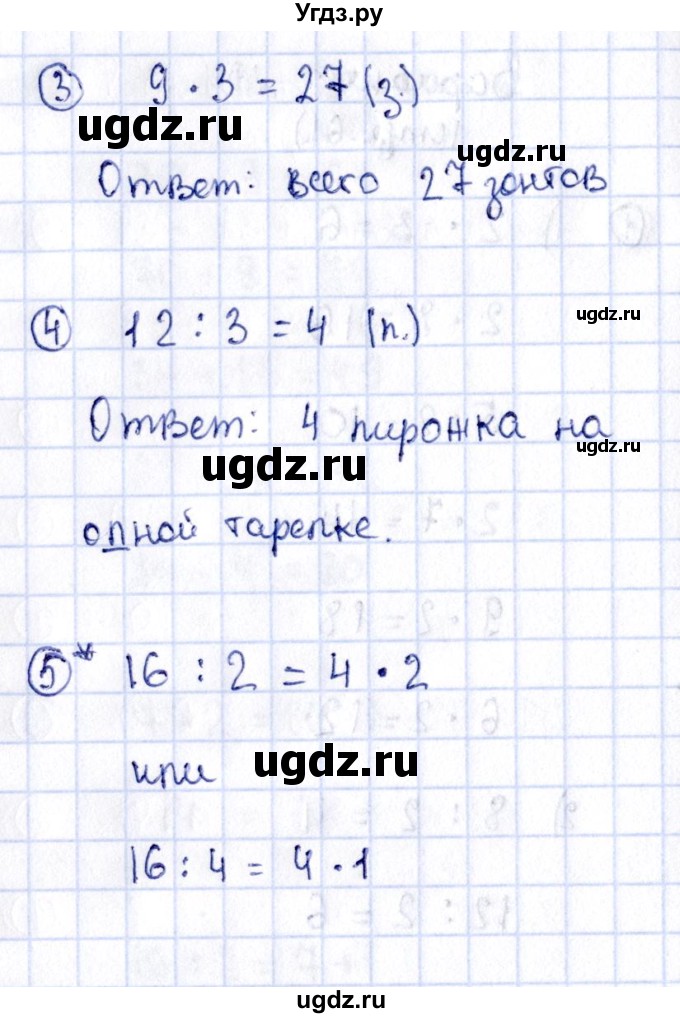 Угдз.ру
3 9 · 3 = 27 (з.)
ugdz.ru
ugdz.ru
Ответ: всего 27 зонтов
4 12 : 3 = 4 (п.)
ugdz.ru
Ответ: 4 пирожка на
ugdz.ru
ugdz.ru
одной тарелке.
5* 16 : 2 = 4 · 2
или
ugdz.ru
16 : 4 = 4 · 1
ugdz.ru
ugdz.ru